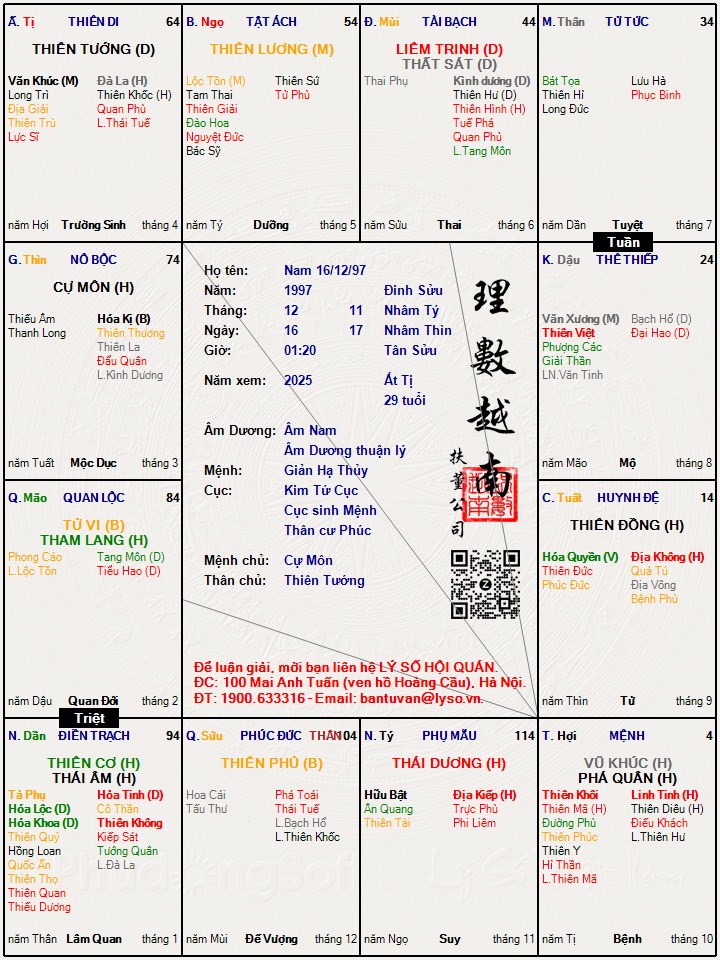 Ấ. Tị THIÊN DI 64
THIÊN TƯỚNG (D)
Văn Khúc (M) Đà La (H)
Long Trì Thiên Khốc (H)
Địa Giải Quan Phủ
Thiên Trù L.Thái Tuế
Lực Sĩ
năm Hợi Trường Sinh tháng 4
B. Ngọ TẬT ÁCH 54
THIÊN LƯƠNG (M)
Lộc Tồn (M) Thiên Sứ
Tam Thai Tử Phù
Thiên Giải
Đào Hoa
Nguyệt Đức
Bác Sỹ
năm Tý Dưỡng tháng 5
Đ. Mùi TÀI BẠCH 44
LIÊM TRINH (D)
THẤT SÁT (D)
Thai Phụ Kình dương (D)
Thiên Hư (D)
Thiên Hình (H)
Tuế Phá
Quan Phủ
L.Tang Môn
năm Sửu Thai tháng 6
M. Thân TỬ TỨC 34
Bát Tọa Lưu Hà
Thiên Hỉ Phục Binh
Long Đức
năm Dần Tuyệt tháng 7
Tuần
G. Thìn NÔ BỘC 74
CỰ MÔN (H)
Thiếu Âm Hóa Kị (B)
Thanh Long Thiên Thương
Thiên La
Đẩu Quân
L.Kình Dương
năm Tuất Mộc Dục tháng 3
Họ tên: Nam 16/12/97
Năm: 1997 Đinh Sửu
Tháng: 12 11 Nhâm Tý
Ngày: 16 17 Nhâm Thìn
Giờ: 01:20 Tân Sửu
Năm xem: 2025 Ất Tị
29 tuổi
Âm Dương: Âm Nam
Âm Dương thuận lý
Mệnh: Giản Hạ Thủy
Cục: Kim Tứ Cục
Cục sinh Mệnh
Thân cư Phúc
Mệnh chủ: Cự Môn
Thân chủ: Thiên Tướng
理數越南
扶董公司
Để luận giải, mời bạn liên hệ LÝ SỐ HỘI QUÁN.
ĐC: 100 Mai Anh Tuấn (ven hồ Hoàng Cầu), Hà Nội.
ĐT: 1900.633316 - Email: bantuvan@lyso.vn.
K. Dậu THÊ THIẾP 24
Văn Xương (M) Bạch Hổ (D)
Thiên Việt Đại Hao (D)
Phượng Các
Giải Thần
LN.Văn Tinh
năm Mão Mộ tháng 8
Q. Mão QUAN LỘC 84
TỬ VI (B)
THAM LANG (H)
Phong Cáo Tang Môn (D)
L.Lộc Tồn Tiểu Hao (D)
năm Dậu Quan Đới tháng 2
Triệt
C. Tuất HUYNH ĐỆ 14
THIÊN ĐỒNG (H)
Hóa Quyền (V) Địa Không (H)
Thiên Đức Quả Tú
Phúc Đức Địa Võng
Bệnh Phù
năm Thìn Tử tháng 9
N. Dần ĐIỀN TRẠCH 94
THIÊN CƠ (H)
THÁI ÂM (H)
Tả Phụ Hỏa Tinh (D)
Hóa Lộc (D) Cô Thần
Hóa Khoa (D) Thiên Không
Thiên Quý Kiếp Sát
Hồng Loan Tướng Quân
Quốc Ấn L.Đà La
Thiên Thọ
Thiên Quan
Thiếu Dương
năm Thân Lâm Quan tháng 1
Q. Sửu PHÚC ĐỨC THÂN 104
THIÊN PHỦ (B)
Hoa Cái Phá Toái
Tấu Thư Thái Tuế
L.Bạch Hổ
L.Thiên Khốc
năm Mùi Đế Vượng tháng 12
N. Tý PHỤ MẪU 114
THÁI DƯƠNG (H)
Hữu Bật Địa Kiếp (H)
Ân Quang Trực Phù
Thiên Tài Phi Liêm
năm Ngọ Suy tháng 11
T. Hợi MỆNH 4
VŨ KHÚC (H)
PHÁ QUÂN (H)
Thiên Khôi Linh Tinh (H)
Thiên Mã (H) Thiên Diêu (H)
Đường Phù Điếu Khách
Thiên Phúc L.Thiên Hư
Thiên Y
Hỉ Thần
L.Thiên Mã
năm Tị Bệnh tháng 10